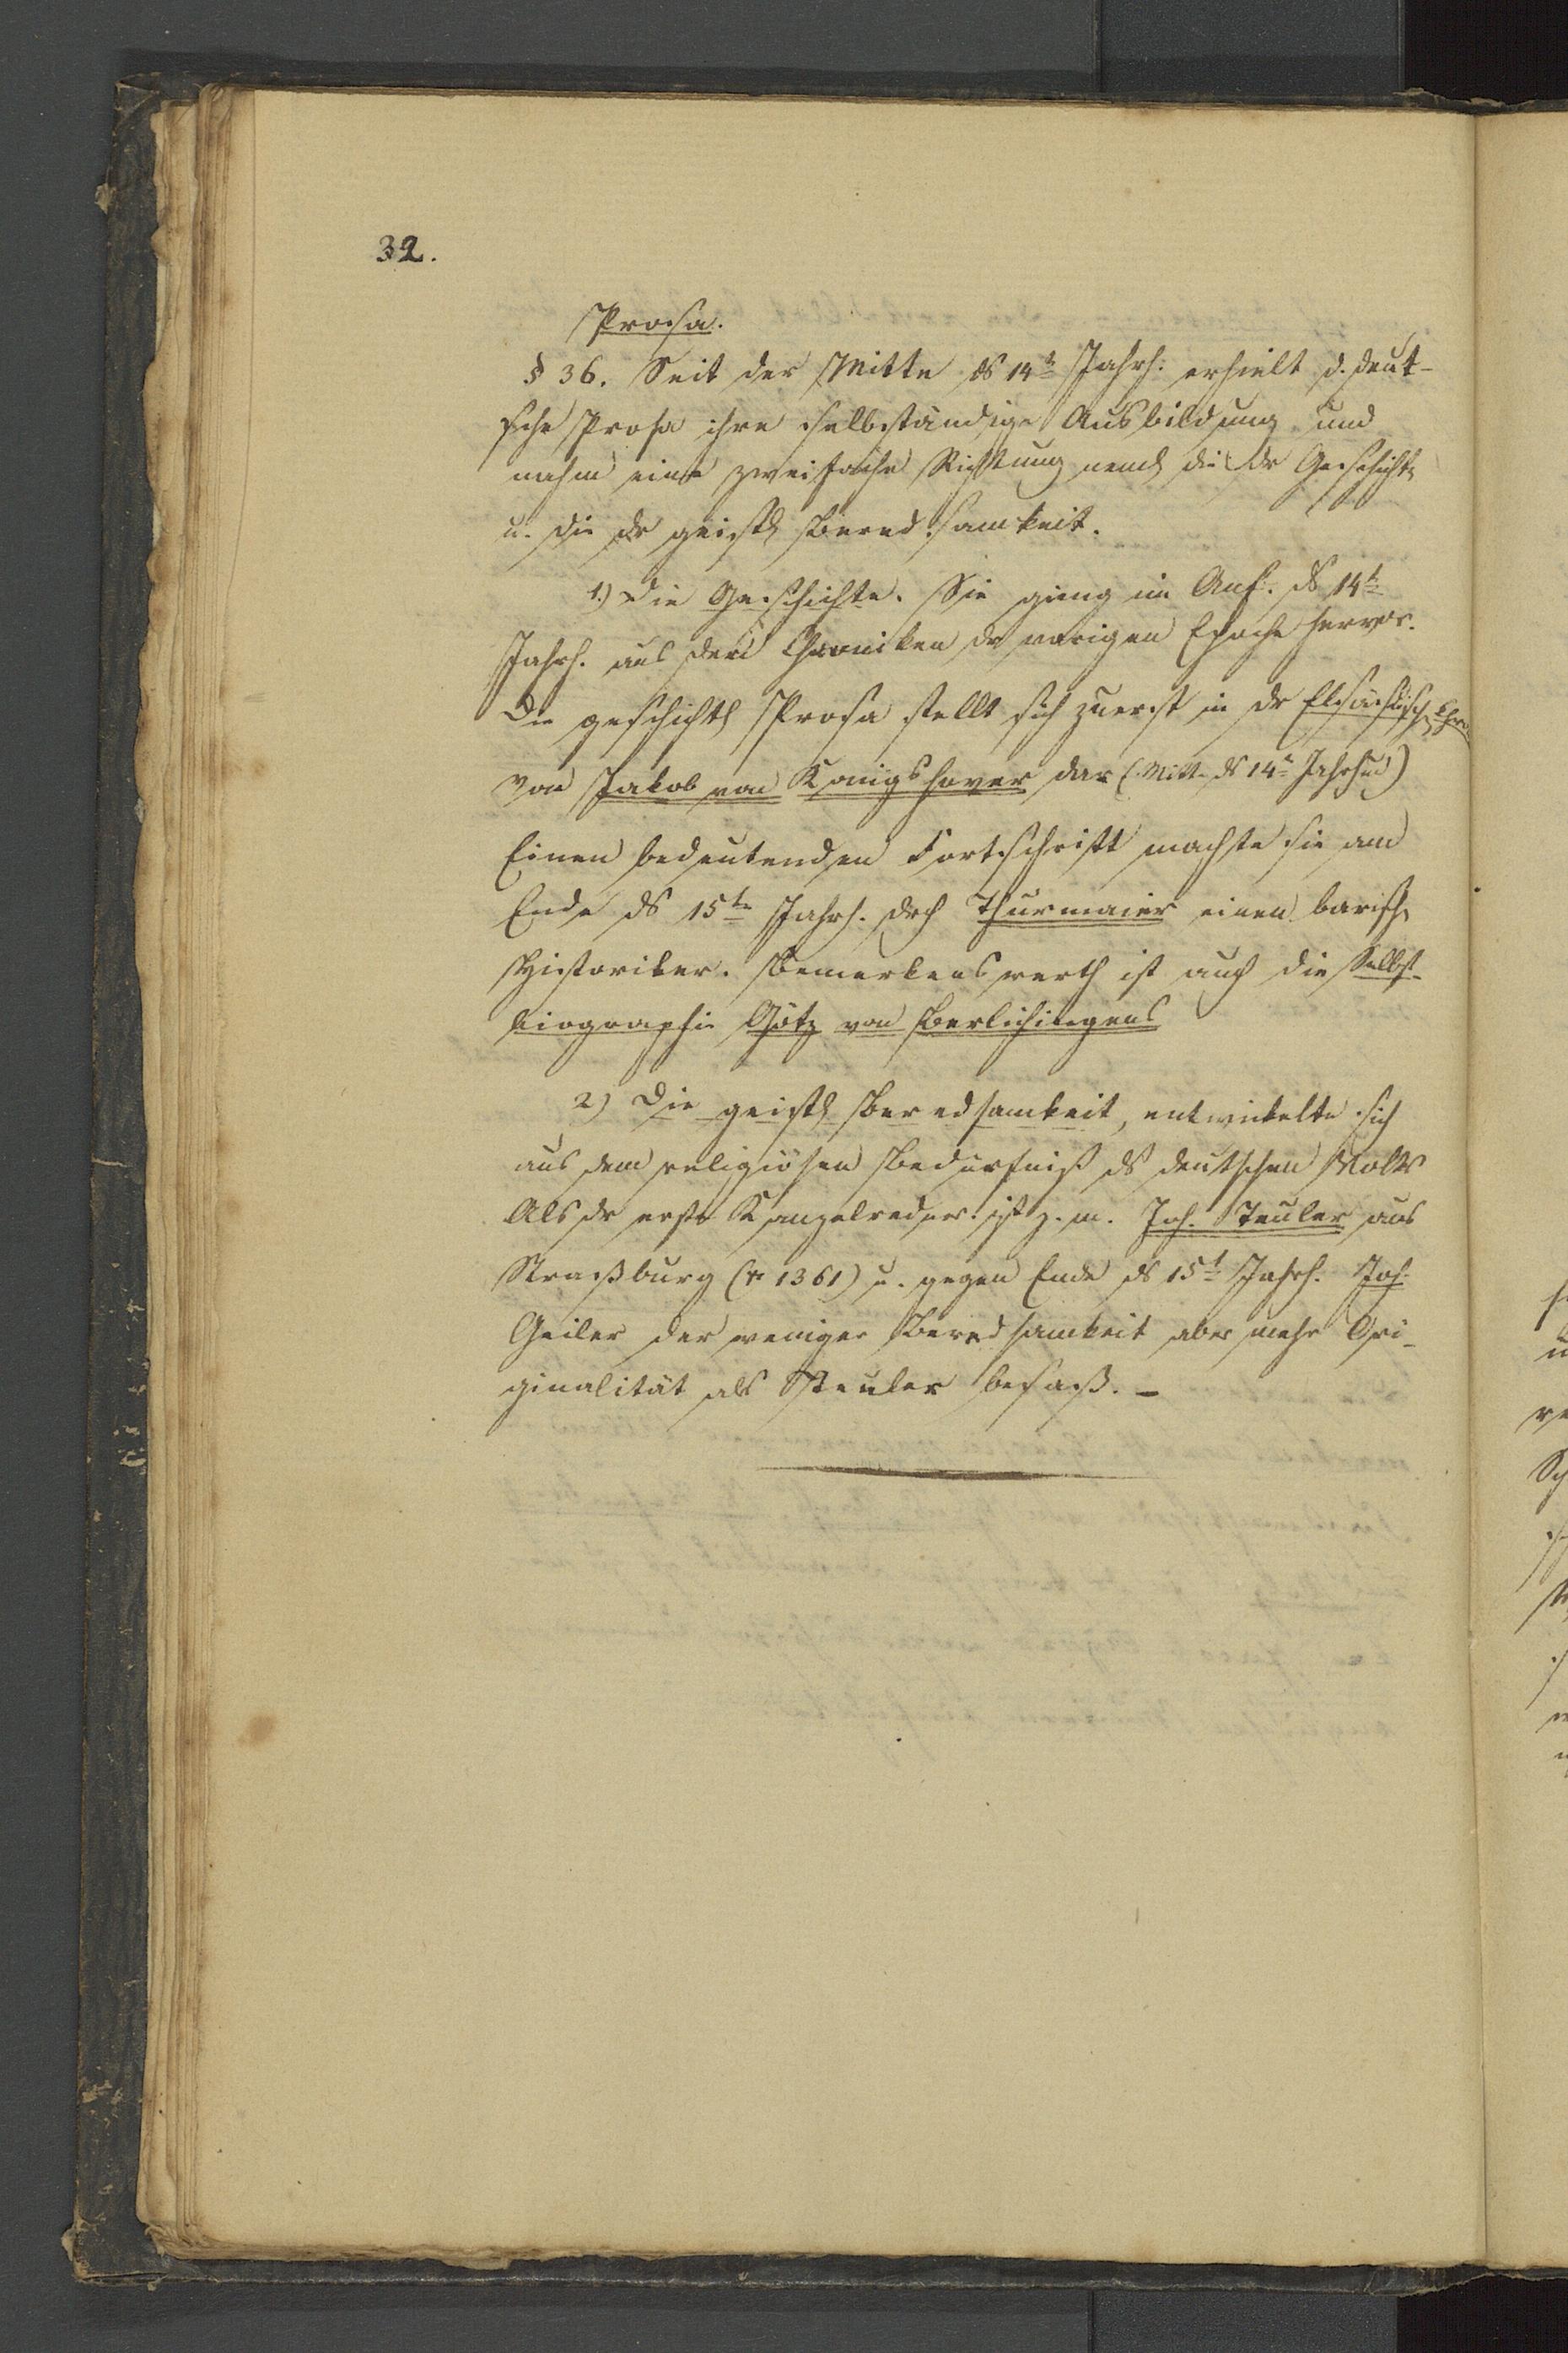 32.
Prosa.
§ 36. Seit der Mitte ds 14t Jahrh. erhielt d. deut-
sche Prosa ihre selbständige Ausbildung und
nahm eine zweifache Richtung neml die dr Geschichte
u. die dr geistl Beredsamkeit.
1.) Die Geschichte. Sie gieng im Anf. ds 14t
Jahrh. aus den Chroniken dr vorigen Epoche hervor.
Die geschichtl Prosa stellt sich zuerst in dr Elsäsisch Chro
von Jakob von Königshover dar (Mitte ds 14t Jahrhud)
Einen bedeutenden Fortschritt machte sie am
Ende ds 15tn Jahrh. dch Thurmaier einen barisch
Historiker. Bemerkenswerth ist auch die Selbst-
biographie Götz von Berlichingens
2) Die geistl Beredsamkeit, entwickelte sich
aus dem religiösen Bedürfniß ds deutschen Volks
Als dr erste Kanzelredner ist z. m. Joh. Teuler aus
Straßburg († 1361) u. gegen Ende ds 15t Jahrh. Joh.
Geiler der weniger Beredsamkeit aber mehr Ori-
ginalität als Teuler besaß. –